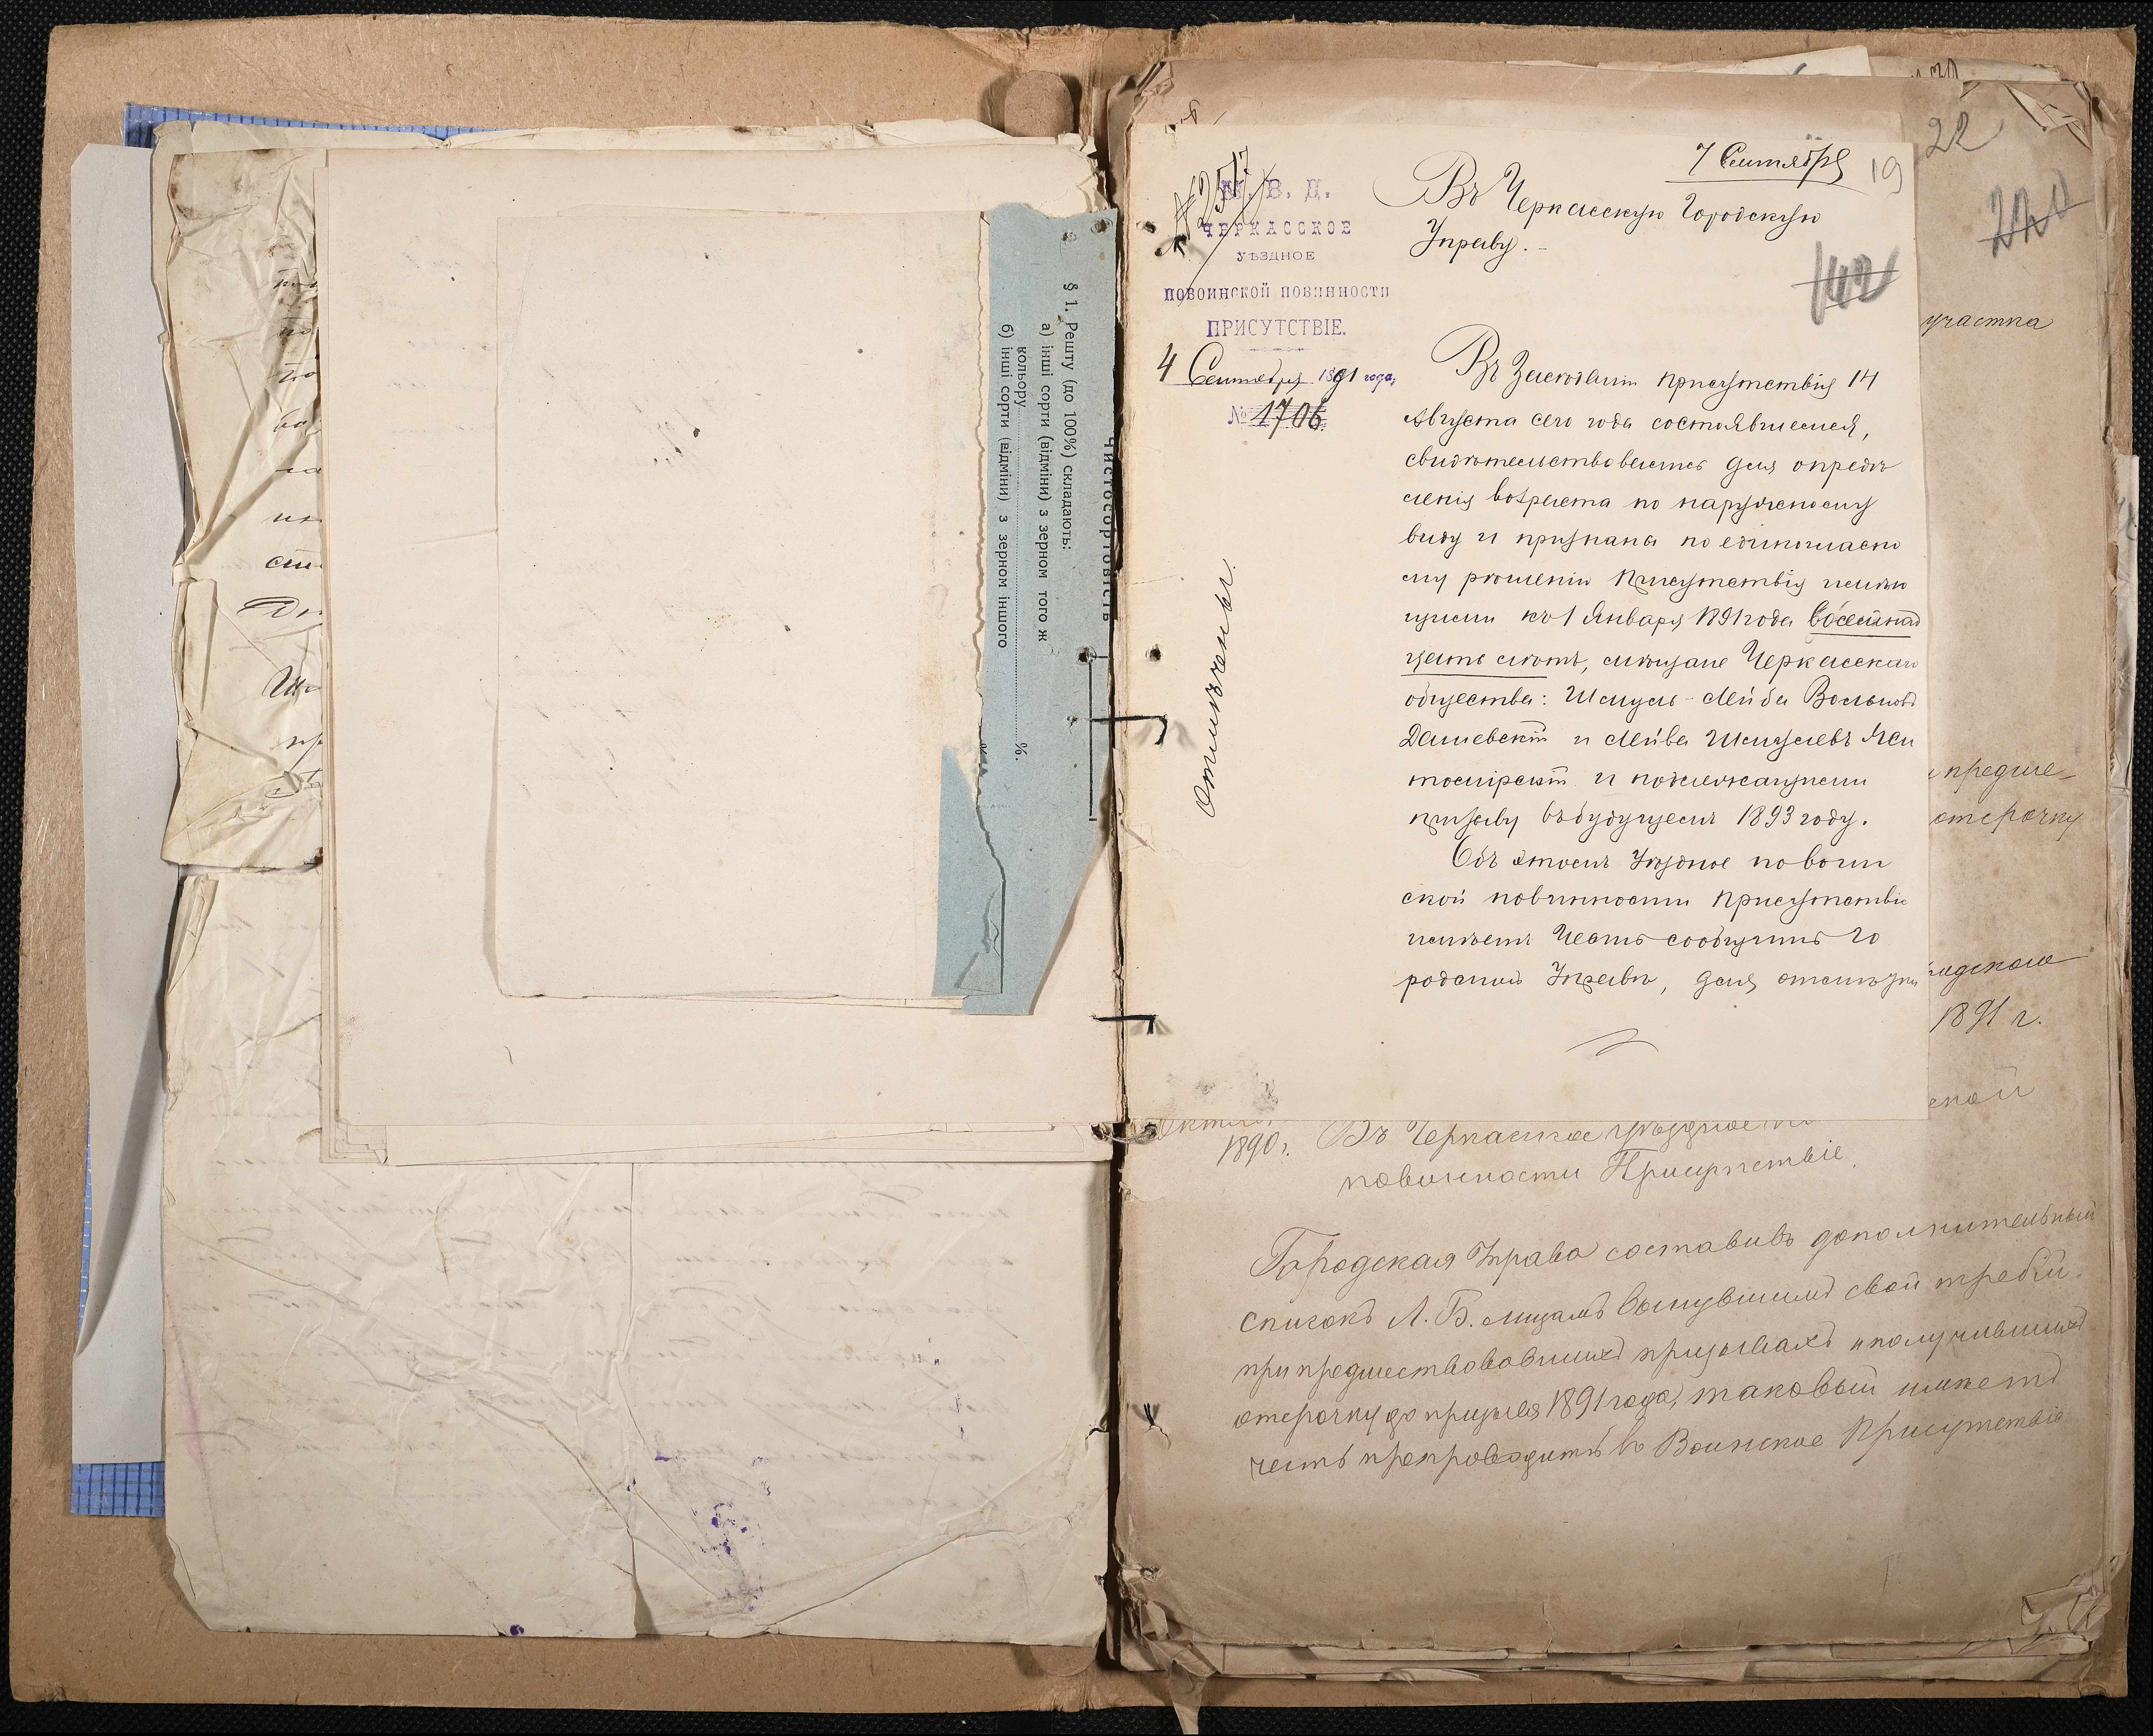 § 1. Решту (до 100%) складають:
а) інші сорти (відміни) з зерном того ж
кольору
б) інші сорти (відміни) з зерном іншого
%.
Чистосортовість
7 Сентября
19
22
В. Д.
ЧЕРКАССКОЕ
УѢЗДНОЕ
ПОВОИНСКОЙ ПОВИННОСТИ
ПРИСУТСТВІЕ.
4 Сентября 1891 года,
№ 1706.
Въ Черкасскую Городскую
Управу.
142
220
участка
Отмѣчены.
Въ Заседаніи присутствія 14
Августа сего года состоявшемся,
свидѣтельствовались для опредѣ
ленія возраста по наружному
виду и признаны по единогласно
му рѣшенію Присутствія имѣю
щими къ 1 Января 1891 года восемнад
цать лѣтъ, мѣщане Черкасскаго
общества: Шмуль-Лейба Вольковъ
Дашевскій и Лейба Шмулевъ
и подлежащими
призыву въ будущемъ 1893 году.
Объ этомъ Уѣздное по воин
ской повинности Присутствіе
имѣетъ честь сообщить Го
родской Управѣ, для отмѣтки
предше-
отсрочку
1891 г.
ской
1890 г.
Въ Черкасское уѣздное по
повинности Присутствіе.
Городская Управа составивъ дополнительный
списокъ Л. Б. лицамъ вынувшимъ свой жребій
при предшествовавшихъ призывахъ и получившихъ
отсрочку до призыва 1891 года, таковый имѣетъ
честь препроводить въ Воинское Присутствіе